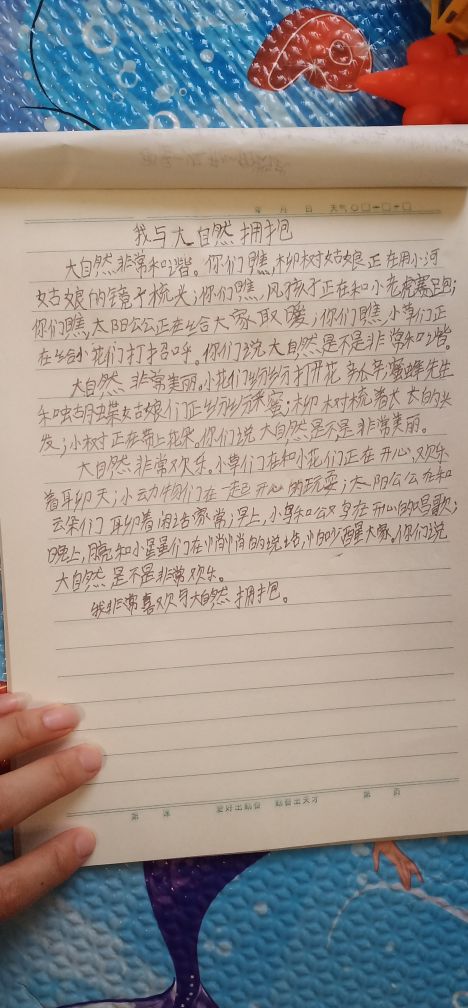 年 月 日 天气
我与大自然拥抱
大自然非常和谐。你们瞧,柳树姑娘正在用小河
姑娘的镜子梳头;你们瞧,风孩子正在和小老虎赛跑;
你们瞧,太阳公公正在给大家取暖;你们瞧,小草们正
在给小花们打招呼。你们说大自然是不是非常和谐。
大自然非常美丽。小花们纷纷打开花 蜜蜂先生
和蝴蝶姑娘们正纷纷采蜜;柳树梳着长长的头
发;小树正在带上花朵。你们说大自然是不是非常美丽。
大自然非常欢乐。小草们在和小花们正在开心,欢乐
着聊天;小动物们在一起开心的玩耍;太阳公公在和
云朵们聊着闲话家常;早上,小鸟和公鸡在开心的唱歌;
晚上,月亮和小星星们在悄悄的说话,怕吵醒大家。你们说
大自然是不是非常欢乐。
我非常喜欢与大自然拥抱。